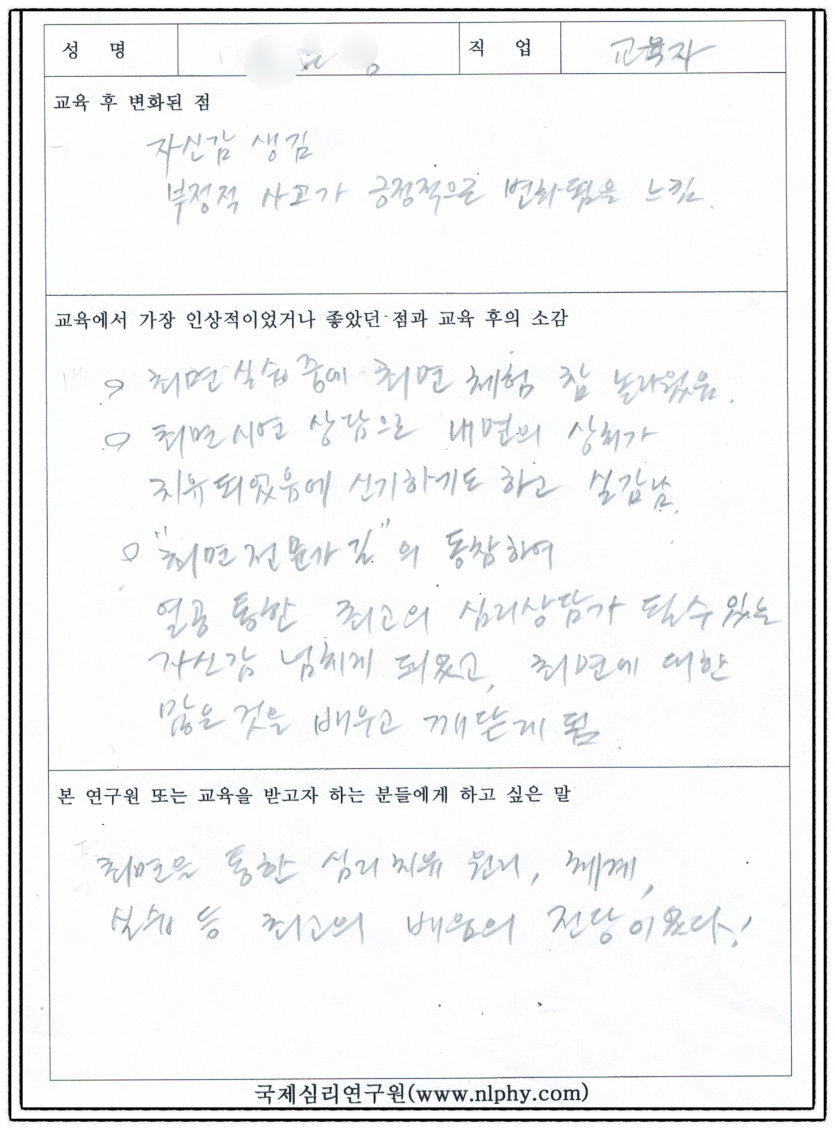 성 명
직 업 교육자
교육 후 변화된 점
자신감 생김
부정적 사고가 긍정적으로 변화됨을 느낌.
교육에서 가장 인상적이었거나 좋았던 점과 교육 후의 소감
최면실습 중에 최면 체험 참 놀라웠음.
최면시연 상담으로 내면의 상처가
치유되었음에 신기하기도 하고 실감남.
"최면전문가 길"의 동참하여
열공 통한 최고의 심리상담가 될 수 있는
자신감 넘치게 되었고, 최면에 대한
많은 것을 배우고 깨닫게 됨.
본 연구원 또는 교육을 받고자 하는 분들에게 하고 싶은 말
최면을 통한 심리치유 원리, 체계,
실습 등 최고의 배움의 전당이었다!
국제심리연구원(www.nlphy.com)